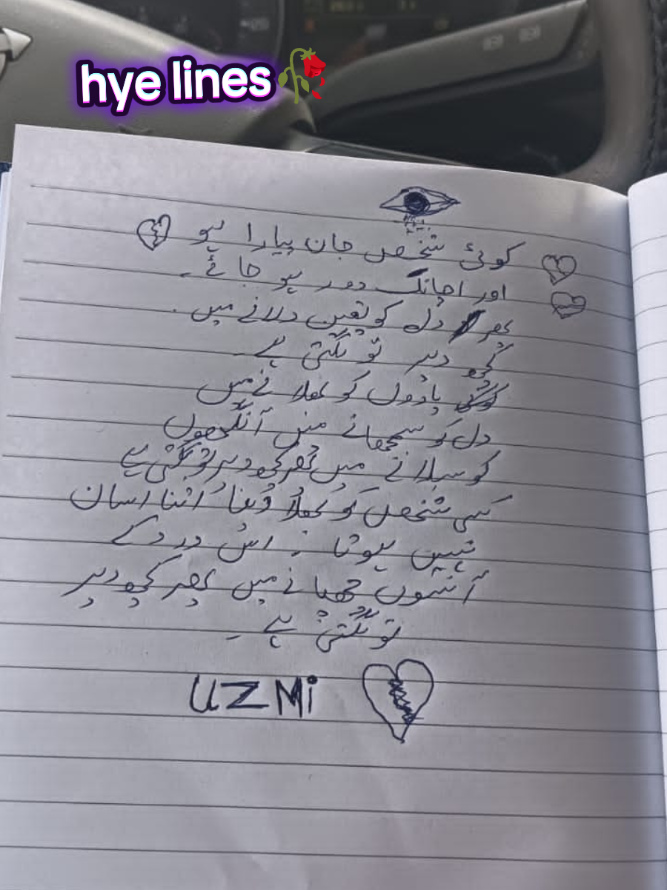 hye lines🥀
کوئی شخص جان پیارا ہو
اور اچانک دور ہو جائے۔
پھر دل کو یقین دلانے میں۔
کچھ دیر تو لگتی ہے۔
یادوں کو بھلانے میں
دل کو سمجھانے میں آنکھوں
کو سلانے میں پھر کچھ دیر تو لگتی ہے
کسی شخص کو بھلا دینا اتنا اسان
نہیں ہوتا۔ اس درد کے
آنسوں چھپانے میں پھر کچھ دیر
تو لگتی ہے۔
UZMi